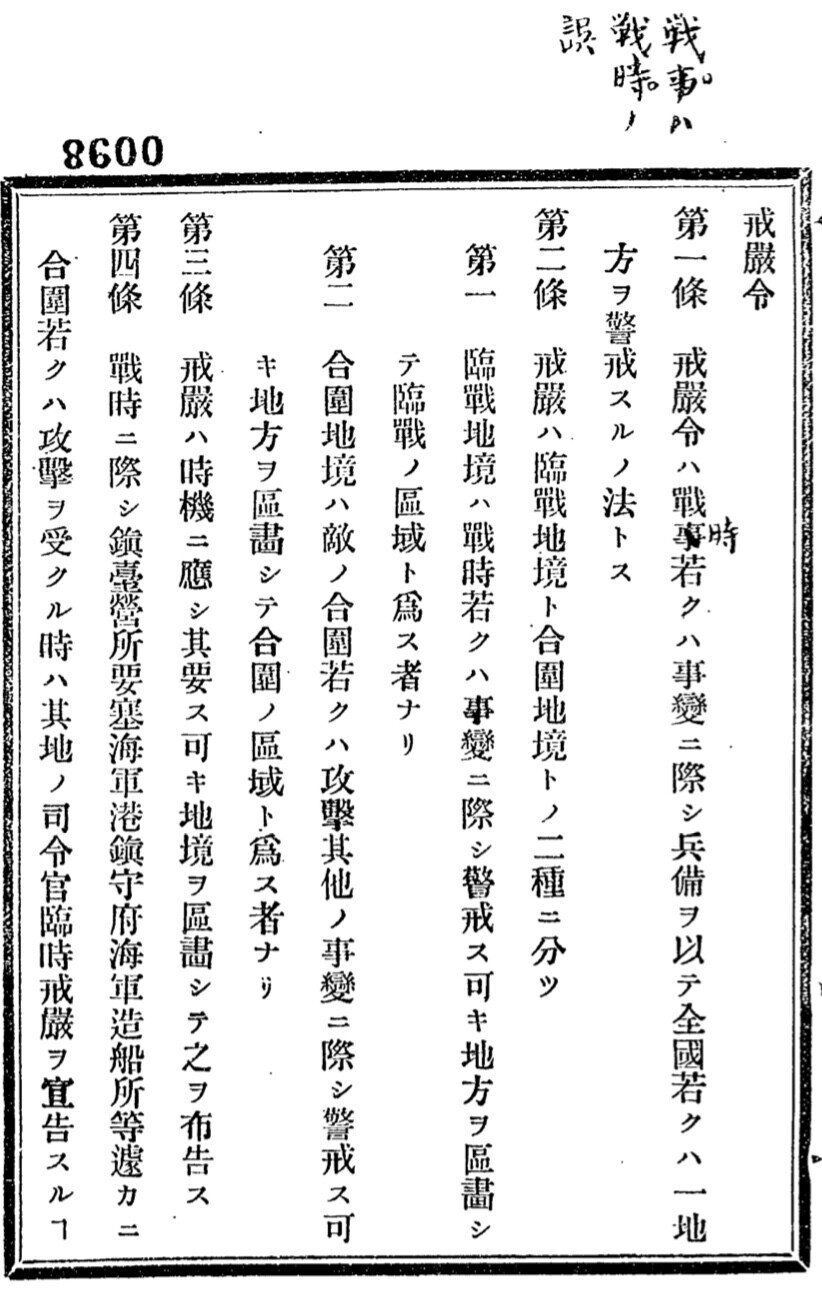 戦事ハ
戦時ノ
誤
0098
戒嚴令
第一條 戒嚴令ハ戰事若クハ事變ニ際シ兵備ヲ以テ全國若クハ一地
時
方ヲ警戒スルノ法トス
第二條 戒嚴ハ臨戰地境ト合圍地境トノ二種ニ分ツ
第一 臨戰地境ハ戰時若クハ事變ニ際シ警戒ス可キ地方ヲ區畵シ
テ臨戰ノ區域ト爲ス者ナリ
第二 合圍地境ハ敵ノ合圍若クハ攻擊其他ノ事變ニ際シ警戒ス可
キ地方ヲ區畵シテ合圍ノ區域ト爲ス者ナリ
第三條 戒嚴ハ時機ニ應シ其要ス可キ地境ヲ區畵シテ之ヲ布告ス
第四條 戰時ニ際シ鎭臺營所要塞海軍港鎭守府海軍造船所等遽カニ
合圍若クハ攻擊ヲ受クル時ハ其地ノ司令官臨時戒嚴ヲ宣告スルヿ